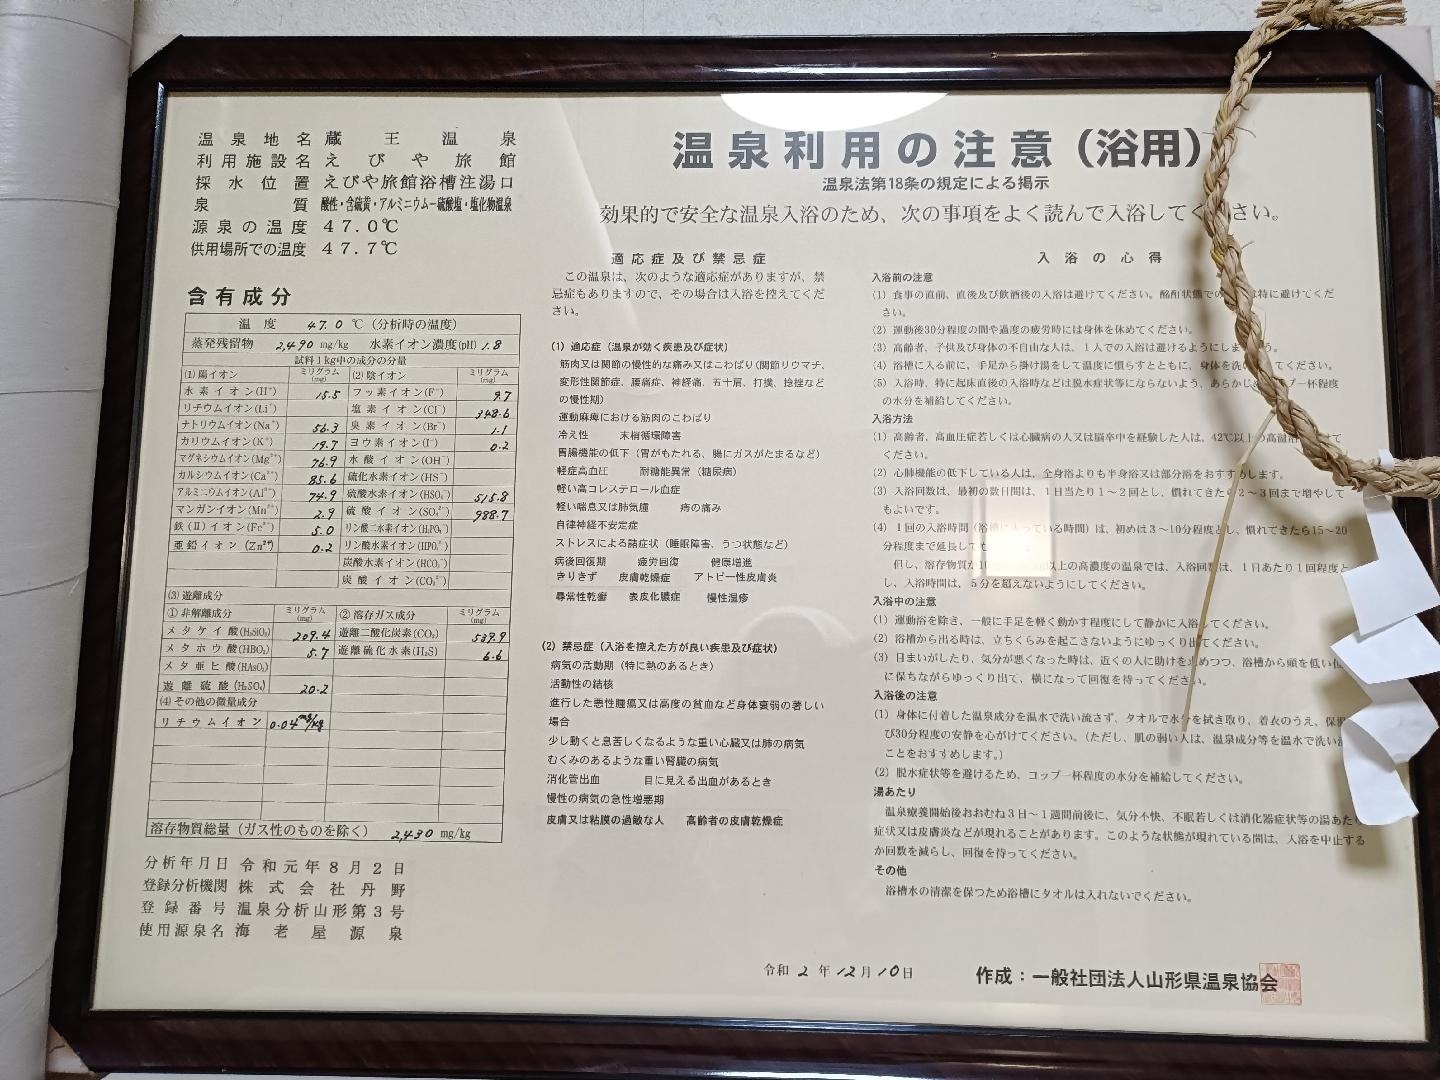 温泉地名 蔵王温泉
利用施設名 えびや旅館
採水位置 えびや旅館浴槽注湯口
泉質 酸性・含硫黄・アルミニウムー硫酸塩・塩化物温泉
源泉の温度 47.0℃
供用場所での温度 47.7℃
含有成分
温度 47.0 ℃（分析時の温度）
蒸発残留物 2,490 mg/kg 水素イオン濃度(pH) 1.8
試料1kg中の成分の分量
(1) 陽イオン ミリグラム(mg) (2) 陰イオン ミリグラム(mg)
水素イオン(H⁺) 15.5 フッ素イオン(F⁻) 9.7
リチウムイオン(Li⁺) 塩素イオン(Cl⁻) 348.6
ナトリウムイオン(Na⁺) 56.3 臭素イオン(Br⁻) 1.1
カリウムイオン(K⁺) 19.7 ヨウ素イオン(I⁻) 0.2
マグネシウムイオン(Mg²⁺) 76.9 水酸イオン(OH⁻)
カルシウムイオン(Ca²⁺) 85.6 硫化水素イオン(HS⁻)
アルミニウムイオン(Al³⁺) 74.9 硫酸水素イオン(HSO₄⁻) 515.8
マンガンイオン(Mn²⁺) 2.9 硫酸イオン(SO₄²⁻) 988.7
鉄(II)イオン(Fe²⁺) 5.0 リン酸二水素イオン(H₂PO₄⁻)
亜鉛イオン(Zn²⁺) 0.2 リン酸水素イオン(HPO₄²⁻)
炭酸水素イオン(HCO₃⁻)
炭酸イオン(CO₃²⁻)
(3) 遊離成分
① 非解離成分 ミリグラム(mg) ② 溶存ガス成分 ミリグラム(mg)
メタケイ酸(H₂SiO₃) 209.4 遊離二酸化炭素(CO₂) 539.9
メタホウ酸(HBO₂) 5.7 遊離硫化水素(H₂S) 6.6
メタ亜ヒ酸(HAsO₂)
遊離硫酸(H₂SO₄) 20.2
(4) その他の微量成分
リチウムイオン 0.04mg/kg
溶存物質総量（ガス性のものを除く） 2,430 mg/kg
分析年月日 令和元年8月2日
登録分析機関 株式会社丹野
登録番号 温泉分析山形第3号
使用源泉名 海老屋源泉
温泉利用の注意（浴用）
温泉法第18条の規定による掲示
効果的で安全な温泉入浴のため、次の事項をよく読んで入浴してく さい。
適応症及び禁忌症
この温泉は、次のような適応症がありますが、禁
忌症もありますので、その場合は入浴を控えてくだ
さい。
(1) 適応症（温泉が効く疾患及び症状）
筋肉又は関節の慢性的な痛み又はこわばり(関節リウマチ、
変形性関節症、腰痛症、神経痛、五十肩、打撲、捻挫など
の慢性期)
運動麻痺における筋肉のこわばり
冷え性 末梢循環障害
胃腸機能の低下（胃がもたれる、腸にガスがたまるなど）
軽症高血圧 耐糖能異常（糖尿病）
軽い高コレステロール血症
軽い喘息又は肺気腫 痔の痛み
自律神経不安定症
ストレスによる諸症状（睡眠障害、うつ状態など）
病後回復期 疲労回復 健康増進
きりきず 皮膚乾燥症 アトピー性皮膚炎
尋常性乾癬 表皮化膿症 慢性湿疹
(2) 禁忌症（入浴を控えた方が良い疾患及び症状）
病気の活動期（特に熱のあるとき）
活動性の結核
進行した悪性腫瘍又は高度の貧血など身体衰弱の著しい
場合
少し動くと息苦しくなるような重い心臓又は肺の病気
むくみのあるような重い腎臓の病気
消化管出血 目に見える出血があるとき
慢性の病気の急性増悪期
皮膚又は粘膜の過敏な人 高齢者の皮膚乾燥症
入浴の心得
入浴前の注意
(1) 食事の直前、直後及び飲酒後の入浴は避けてください。酩酊状態での は特に避けてくだ
さい。
(2) 運動後30分程度の間や過度の疲労時には身体を休めてください。
(3) 高齢者、子供及び身体の不自由な人は、1人での入浴は避けるようにしま う。
(4) 浴槽に入る前に、手足から掛け湯をして温度に慣らすとともに、身体を洗 てください。
(5) 入浴時、特に起床直後の入浴時などは脱水症状等にならないよう、あらかじ プ一杯程度
の水分を補給してください。
入浴方法
(1) 高齢者、高血圧症若しくは心臓病の人又は脳卒中を経験した人は、42℃以上の高温浴 けて
ください。
(2) 心肺機能の低下している人は、全身浴よりも半身浴又は部分浴をおすすめします。
(3) 入浴回数は、最初の数日間は、1日当たり1～2回とし、慣れてきたら2～3回まで増やして
もよいです。
(4) 1回の入浴時間（浴槽に入っている時間）は、初めは3～10分程度とし、慣れてきたら15～20
分程度まで延長しても
但し、溶存物質が 以上の高濃度の温泉では、入浴回数は、1日あたり1回程度と
し、入浴時間は、5分を超えないようにしてください。
入浴中の注意
(1) 運動浴を除き、一般に手足を軽く動かす程度にして静かに入浴してください。
(2) 浴槽から出る時は、立ちくらみを起こさないようにゆっくり出てください。
(3) 目まいがしたり、気分が悪くなった時は、近くの人に助けを求めつつ、浴槽から頭を低い位
に保ちながらゆっくり出て、横になって回復を待ってください。
入浴後の注意
(1) 身体に付着した温泉成分を温水で洗い流さず、タオルで水分を拭き取り、着衣のうえ、保温
び30分程度の安静を心がけてください。（ただし、肌の弱い人は、温泉成分等を温水で洗い流
ことをおすすめします。）
(2) 脱水症状等を避けるため、コップ一杯程度の水分を補給してください。
湯あたり
温泉療養開始後おおむね3日～1週間前後に、気分不快、不眠若しくは消化器症状等の湯あたり
症状又は皮膚炎などが現れることがあります。このような状態が現れている間は、入浴を中止する
か回数を減らし、回復を待ってください。
その他
浴槽水の清潔を保つため浴槽にタオルは入れないでください。
令和 2 年 12 月 10 日
作成：一般社団法人山形県温泉協会